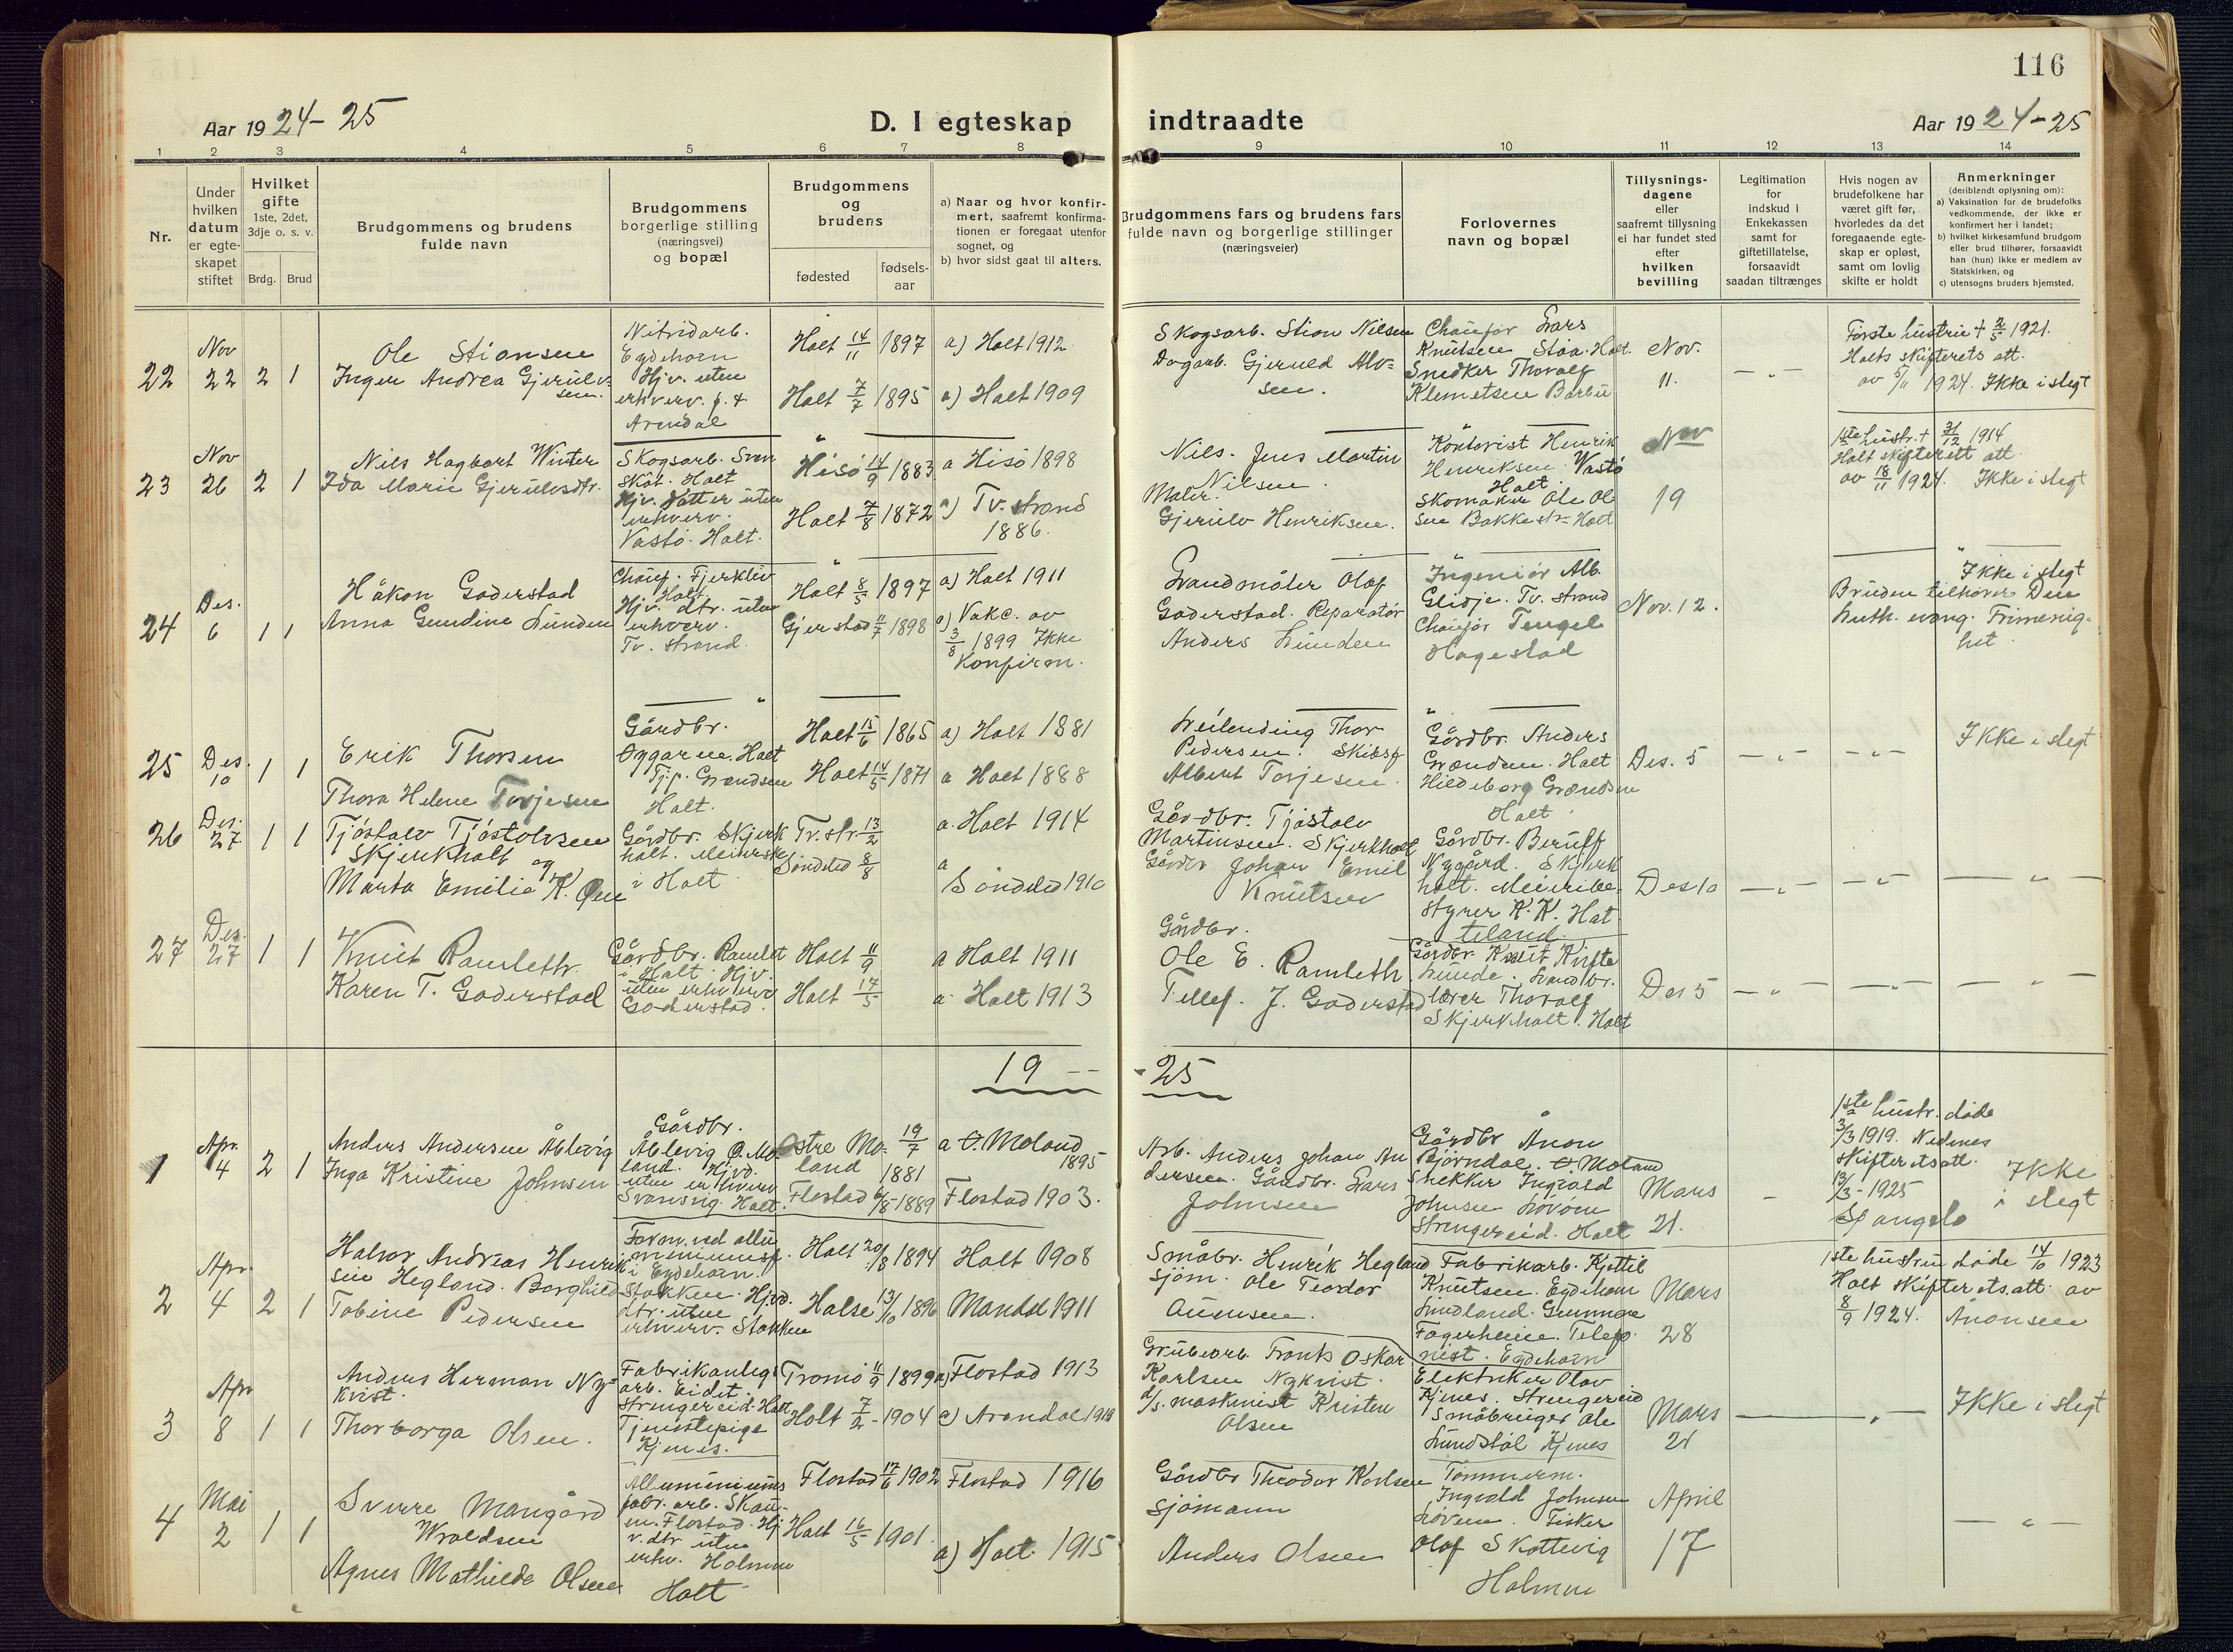 116
Aar 1924-25
D. I egteskap indtraadte
Aar 1924-25
1 2 3 4 5 6 7 8 9 10 11 12 13 14
Nr.
Under hvilken datum er egteskapet stiftet
Hvilket gifte 1ste, 2det, 3dje o. s. v.
Brdg. Brud
Brudgommens og brudens fulde navn
Brudgommens borgerlige stilling (næringsvei) og bopæl
Brudgommens og brudens
fødested
fødsels-aar
a) Naar og hvor konfirmert, saafremt konfirmationen er foregaat utenfor sognet, og
b) hvor sidst gaat til alters.
Brudgommens fars og brudens fars fulde navn og borgerlige stillinger (næringsveier)
Forlovernes navn og bopæl
Tillysnings-dagene eller saafremt tillysning ei har fundet sted efter hvilken bevilling
Legitimation for indskud i Enkekassen samt for giftetillatelse, forsaavidt saadan tiltrænges
Hvis nogen av brudefolkene har været gift før, hvorledes da det foregaaende egteskap er opløst, samt om lovlig skifte er holdt
Anmerkninger (deriblandt oplysning om):
a) Vaksination for de brudefolks vedkommende, der ikke er konfirmert her i landet;
b) hvilket kirkesamfund brudgom eller brud tilhører, forsaavidt han (hun) ikke er medlem av Statskirken, og
c) utensogns bruders hjemsted.
22 Nov 22 2 1
Ole Stiansen
Inger Andrea Gjerulvsen.
Nitridarb. Eydehavn
Hjv. uten erhverv. f. t. Arendal
Holt 14/11 1897 a) Holt 1912
Holt 7/7 1895 a) Holt 1909
Skogsarb. Stian Nilsen
Dagarb. Gjeruld Alvsen.
Chaufør Lars Knutsen Støa. Holt.
Snedker Thoralf Klemetsen Barbu
Nov. 11.
Første hustru † 2/5 1921. Holts skifterets att. av 5/11 1924. Ikke i slegt
23 Nov 26 2 1
Nils Hagbart Winter
Ida Marie Gjerulvsdtr.
Skogsarb. Holt
Hjv. datter uten erhverv. Vastø. Holt.
Hisø 14/9 1883 a Hisø 1898
Holt 7/8 1872 a) Tv. strand 1886.
Nils. Jens Martin Nilsen.
Maler. Gjerulv Henriksen.
Henrik Henriksen Vastø Holt.
Skomaker Ole Olsen Holt
Nov 19
1ste hustr. † 31/12 1914 Holt skifterett att av 18/11 1924. Ikke i slegt
24 Des. 6 1 1
Håkon Goderstad
Anna Gundine Lunden
Chauf. Holt.
Hjv. dtr. uten erhverv. Tv. strand.
Holt 8/5 1897 a) Holt 1911
Gjerstad 11/7 1898 a) Vakc. av 3/8 1899 Ikke Konfirm.
Olaf Goderstad. Reparatør
Anders Lunden
Ingeniør Alb. Tv. strand
Chaufør Tengel Hagestad
Nov. 12.
Ikke i slegt
Bruden tilhører Den luth. evang. Frimenighet
25 Des. 10 1 1
Erik Thorsen
Thora Helene Torjesen
Gårdbr. Holt
Tjp. Grændsen Holt.
Holt 15/6 1865 a) Holt 1881
Holt 14/5 1871 a Holt 1888
Leilending Thor Pedersen. Skibsf Albert Torjesen.
Gårdbr. Anders Grændsen. Holt
Hildeborg Grændsen Holt
Des. 5
Ikke i slegt
26 Des. 27 1 1
Tjøstolv Tjøstolvsen Skjerkholt og
Marta Emilie K.
Gårdbr. Skjerkholt. Meierske i Holt
Tv. str. 13/2 a. Holt 1914
Søndeled 8/8 a Søndeled 1910
Gårdbr. Tjøstolv Martinsen. Skjerkholt
Gårdbr Johan Emil Knutsen
Gårdbr. Berulf Nygård. Skjerkholt. Meieribestyrer K. K. Hateland.
Des 10
27 Des. 27 1 1
Knut Ramleth
Karen T. Goderstad
Gårdbr. Ramlet i Holt. Hjv. uten erhverv Goderstad.
Holt 11/9 a Holt 1911
Holt 17/5 a. Holt 1913
Gårdbr. Ole E. Ramleth
Tellef. J. Goderstad
Gårdbr. Knut
lærer Thoralf Skjerkholt. Holt
Des 5
19 -- 25
1 Apr. 4 2 1
Anders Andersen Åblevig
Inga Kristine Johnsen
Gårdbr. Åblevig Ø. Moland. Hjvd. uten erhverv Svansvig. Holt.
Østre Moland 19/7 1881 a Ø. Moland 1895
Flostad 6/8-1889 Flostad 1903.
Arb. Anders Johan Andersen. Gårdbr. Lars Johnsen
Gårdbr Anon Bjørndal. Ø. Moland
Snekker Ingvald Johnsen Strengereid. Holt
Mars 21.
1ste hustr. døde 3/3 1919. Nedenes skifterets att. 13/3-1925
Ikke i slegt
2 Apr. 4 2 1
Halvor Andreas Henriksen Hegland.
Borghild Tobine Pedersen
Form. ved alluminiumsf. i Eydehavn.
Stokken. Hjvd. dtr. uten erhverv. Stokken
Holt 20/8 1894 Holt 1908
Halse 13/10 1896 Mandal 1911
Småbr. Henrik Hegland
Sjøm. Ole Teodor
Fabrikarb. Kjettil Knutsen. Eydehavn
Gunnar Fagerheim. Telefonist. Eydehavn
Mars 28
1ste hustru døde 14/10 1923 Holt skifterets. att. av 8/9 1924.
3 Apr 8 1 1
Anders Herman Nykvist.
Thorborga Olsen.
Fabrikanlegsarb. Eidet. Strengereid. Holt
Tjenestepige Kjenes.
Tromø 11/9 1899 a) Flostad 1913
Holt 7/2-1904 a) Arendal 1919
Grubearb. Frants Oskar Karlsen Nykvist.
d/s. maskinist Kristen Olsen
Elektriker Olav Kjenes. Strengereid
Småbruger Ole Lundstøl Kjenes
Mars 21
Ikke i slegt
4 Mai 2 1 1
Sverre Mangård Wroldsen
Agnes Mathilde Olsen
Alluminiums fabr. arb. Flostad. Hjv. dtr uten erhv. Holmen Holt
Flostad 17/6 1902 Flostad 1916
Holt 16/5 1901. a) Holt. 1915
Gårdbr Theodor Karlsen
Sjømann Anders Olsen
Tømmerm. Ingvald Johnsen
Fisker Olaf Skottevig Holmen
April 17